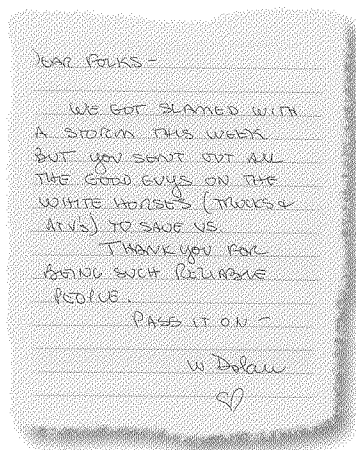 DEAR FOLKS -
WE GOT SLAMED WITH
A STORM THIS WEEK
BUT YOU SENT OUT ALL
THE GOOD GUYS ON THE
WHITE HORSES (TRUCKS &
ATV'S) TO SAVE US.
THANK YOU FOR
BEING SUCH RELIABLE
PEOPLE.
PASS IT ON -
W Dolan